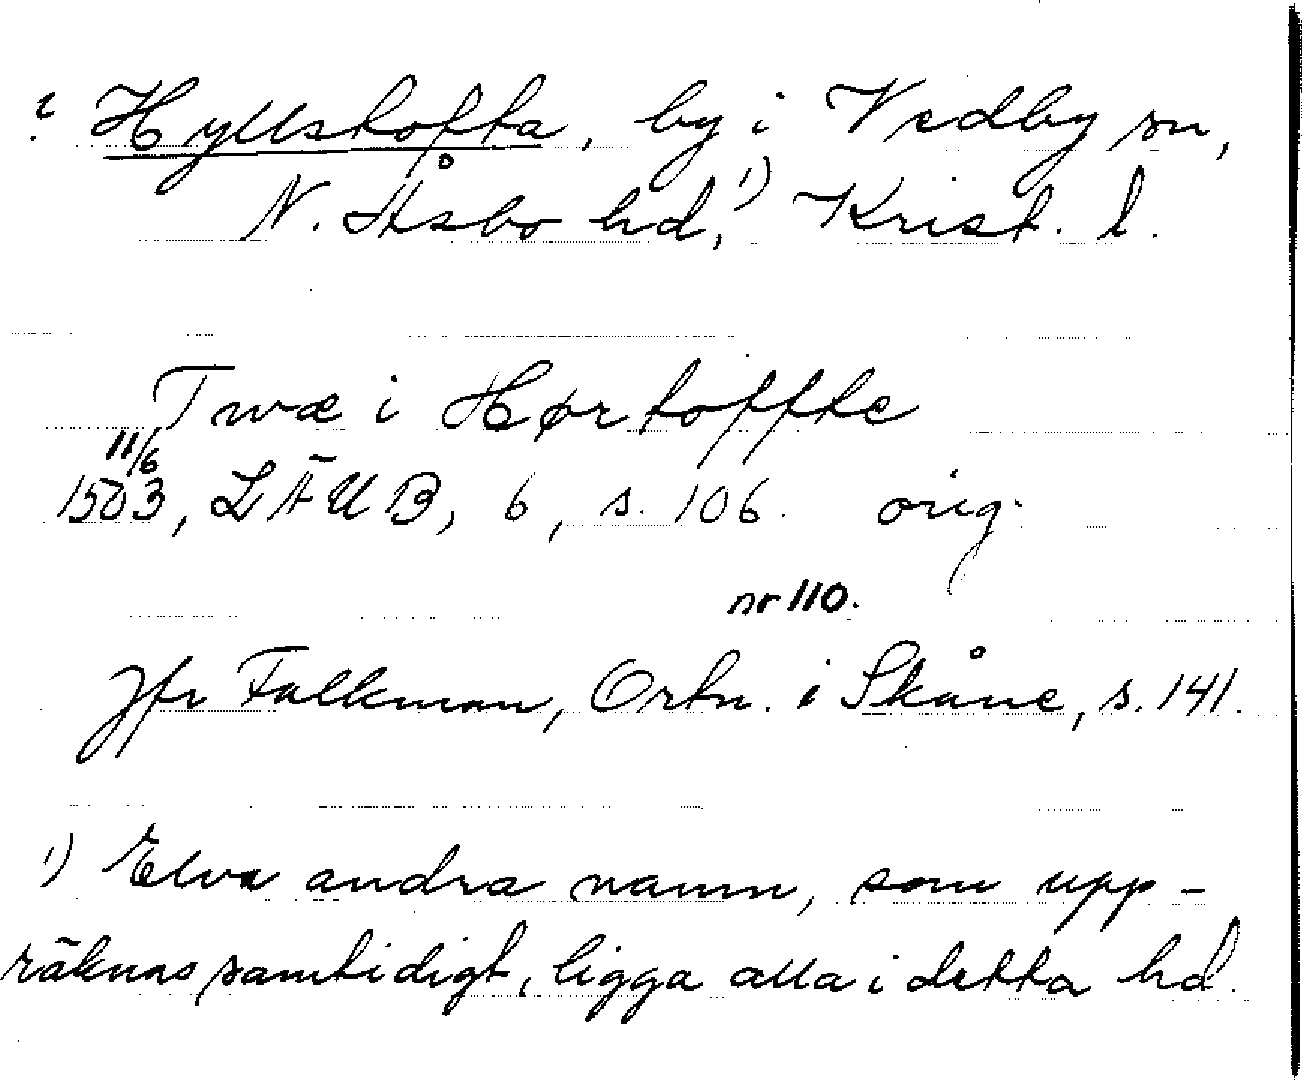 ? Hyllstofta, by i Vedby sn,
N. Åsbo hd,¹) Krist. l.
Twæ i Hørtoffte
11/6
1503, LÄUB, 6, s. 106. orig.
nr 110.
Jfr Falkman, Ortn. i Skåne, s. 141.
¹) Elva andra namn, som upp-
räknas samtidigt, ligga alla i detta hd.